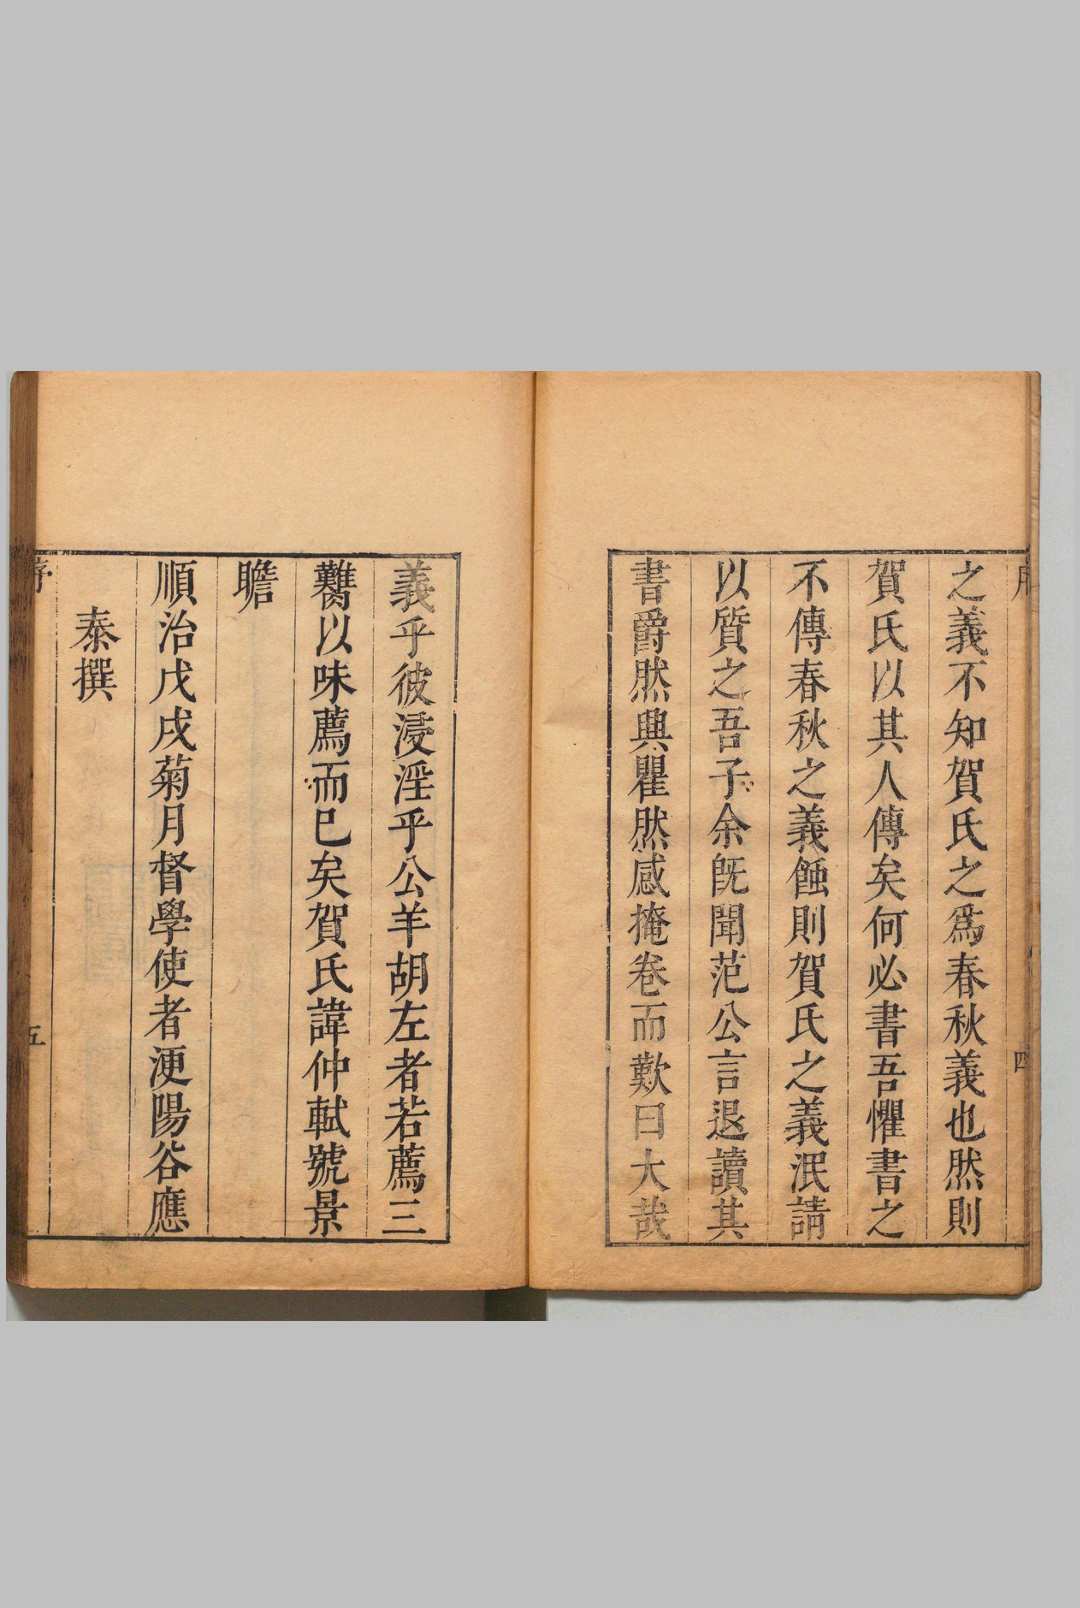 四
之義不知賀氏之爲春秋義也然則
賀氏以其人傳矣何必書吾懼書之
不傳春秋之義蝕則賀氏之義泯請
以質之吾子余旣聞范公言退讀其
書爵然興瞿然感掩卷而歎曰大哉
義乎彼浸淫乎公羊胡左者若薦三
臡以味薦而巳矣賀氏諱仲軾號景
瞻
順治戊戌菊月督學使者浭陽谷應
泰撰
序
五